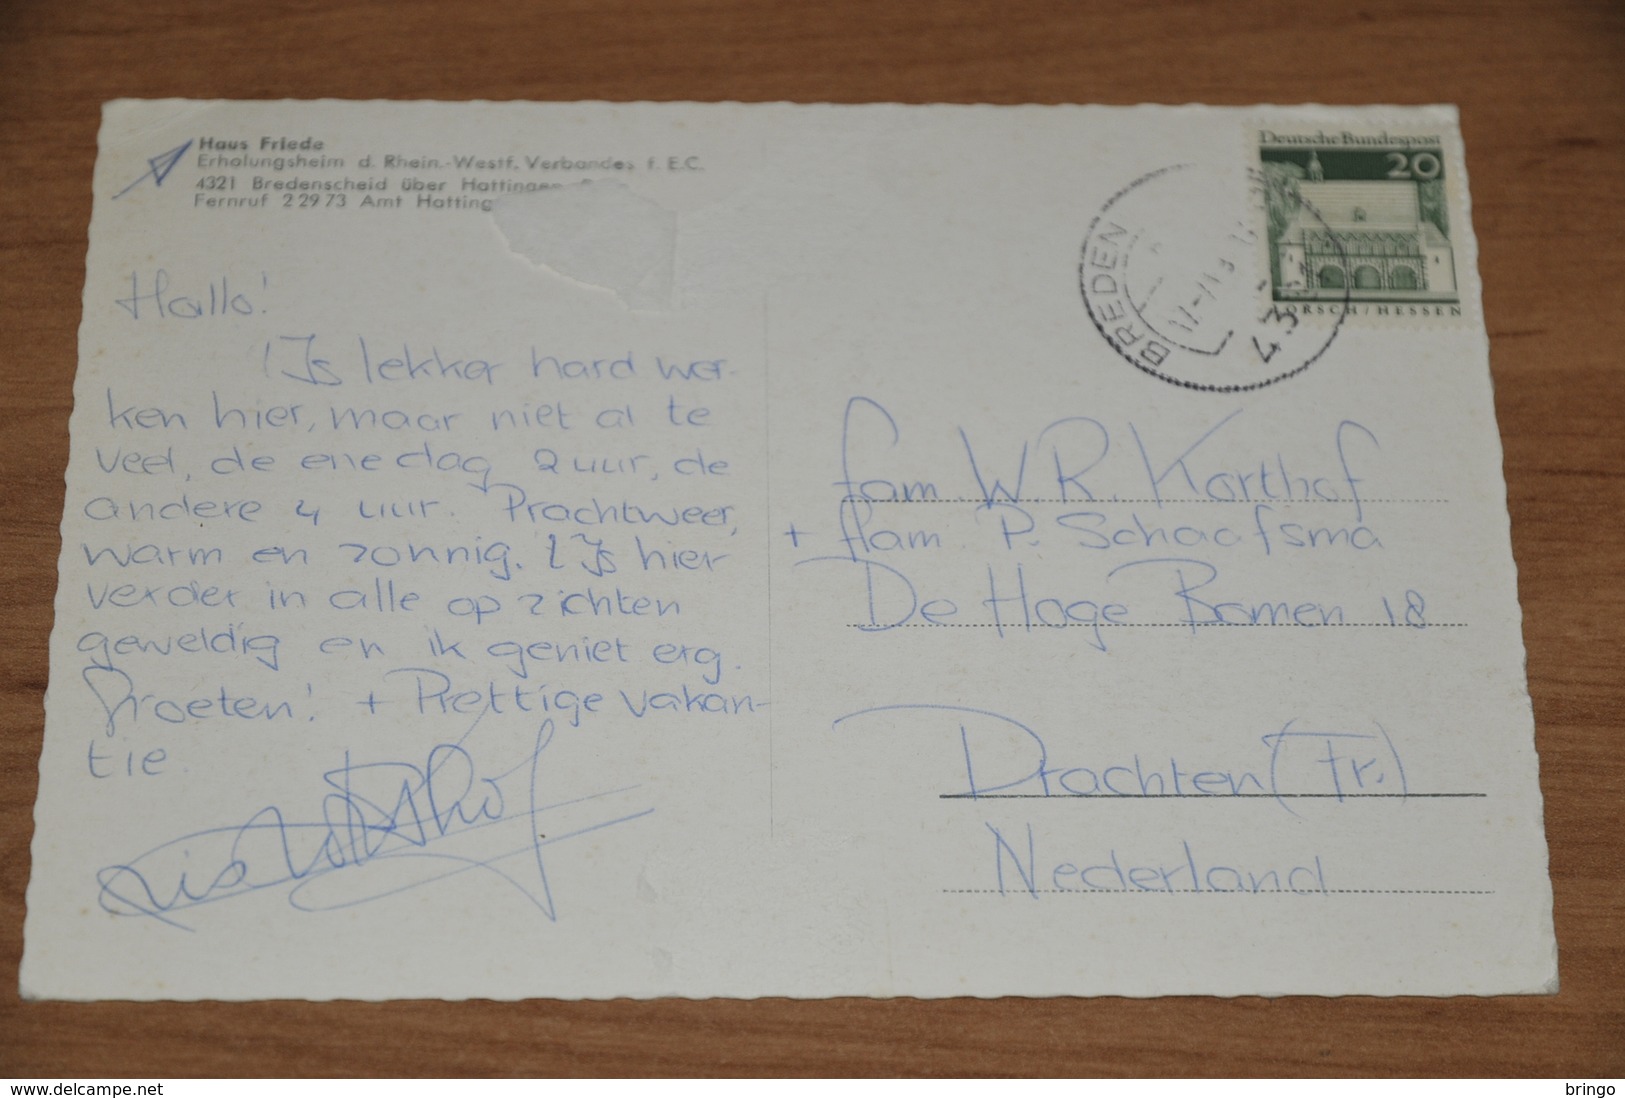 Haus Friede
Erholungsheim d. Rhein.-Westf. Verbandes f. E.C.
4321 Bredenscheid über Hattingen
Fernruf 2 29 73 Amt Hatting
Hallo!
't Is lekker hard wer-
ken hier, maar niet al te
veel, de ene dag 2 uur, de
andere 4 uur. Prachtweer,
warm en zonnig. 't Is hier
verder in alle opzichten
geweldig en ik geniet erg.
Groeten! + Prettige vakan-
tie.
Deutsche Bundespost
20
LORSCH/HESSEN
BREDEN
43
fam. W.R. Korthof
+ fam. P. Schaafsma
De Hoge Bomen 18
Drachten (Fr.)
Nederland
www.delcampe.net
bringo